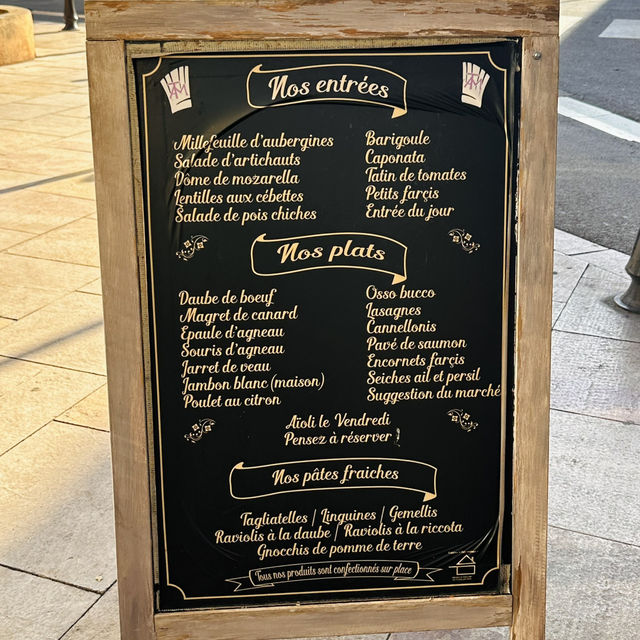 Nos entrées
Millefeuille d'aubergines
Salade d'artichauts
Dome de mozarella
Lentilles aux cébettes
Salade de pois chiches
Barigoule
Caponata
Tatin de tomates
Petits farçis
Entrée du jour
Nos plats
Daube de boeuf
Magret de canard
Epaule d'agneau
Souris d'agneau
Jarret de veau
Jambon blanc (maison)
Poulet au citron
Osso bucco
Lasagnes
Cannellonis
Pavé de saumon
Encornets farçis
Seiches ail et persil
Suggestion du marché
Aioli le Vendredi
Pensez à réserver !
Nos pâtes fraiches
Tagliatelles / Linguines / Gemellis
Raviolis à la daube / Raviolis à la riccota
Gnocchis de pomme de terre
Tous nos produits sont confectionnés sur place